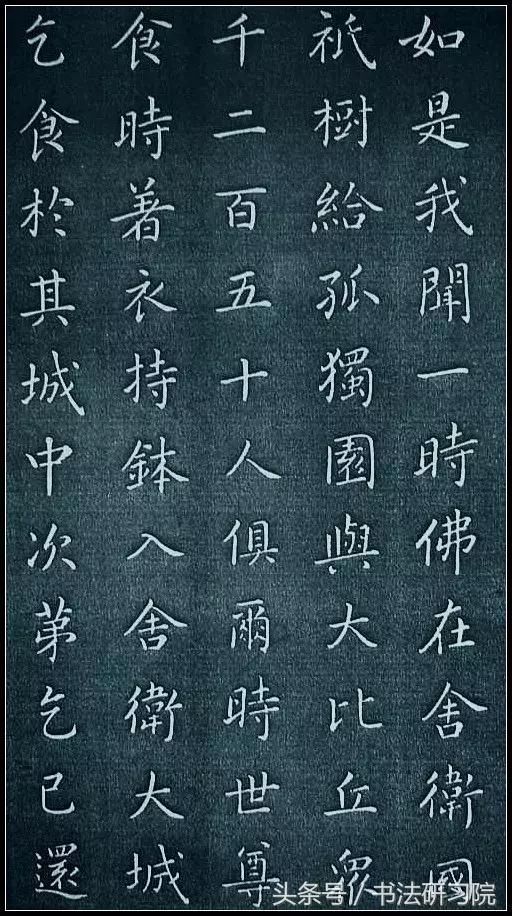 如是我聞一時佛在舍衛國
祇樹給孤獨園與大比丘眾
千二百五十人俱爾時世尊
食時著衣持鉢入舍衛大城
乞食於其城中次第乞已還
头条号/书法研习院